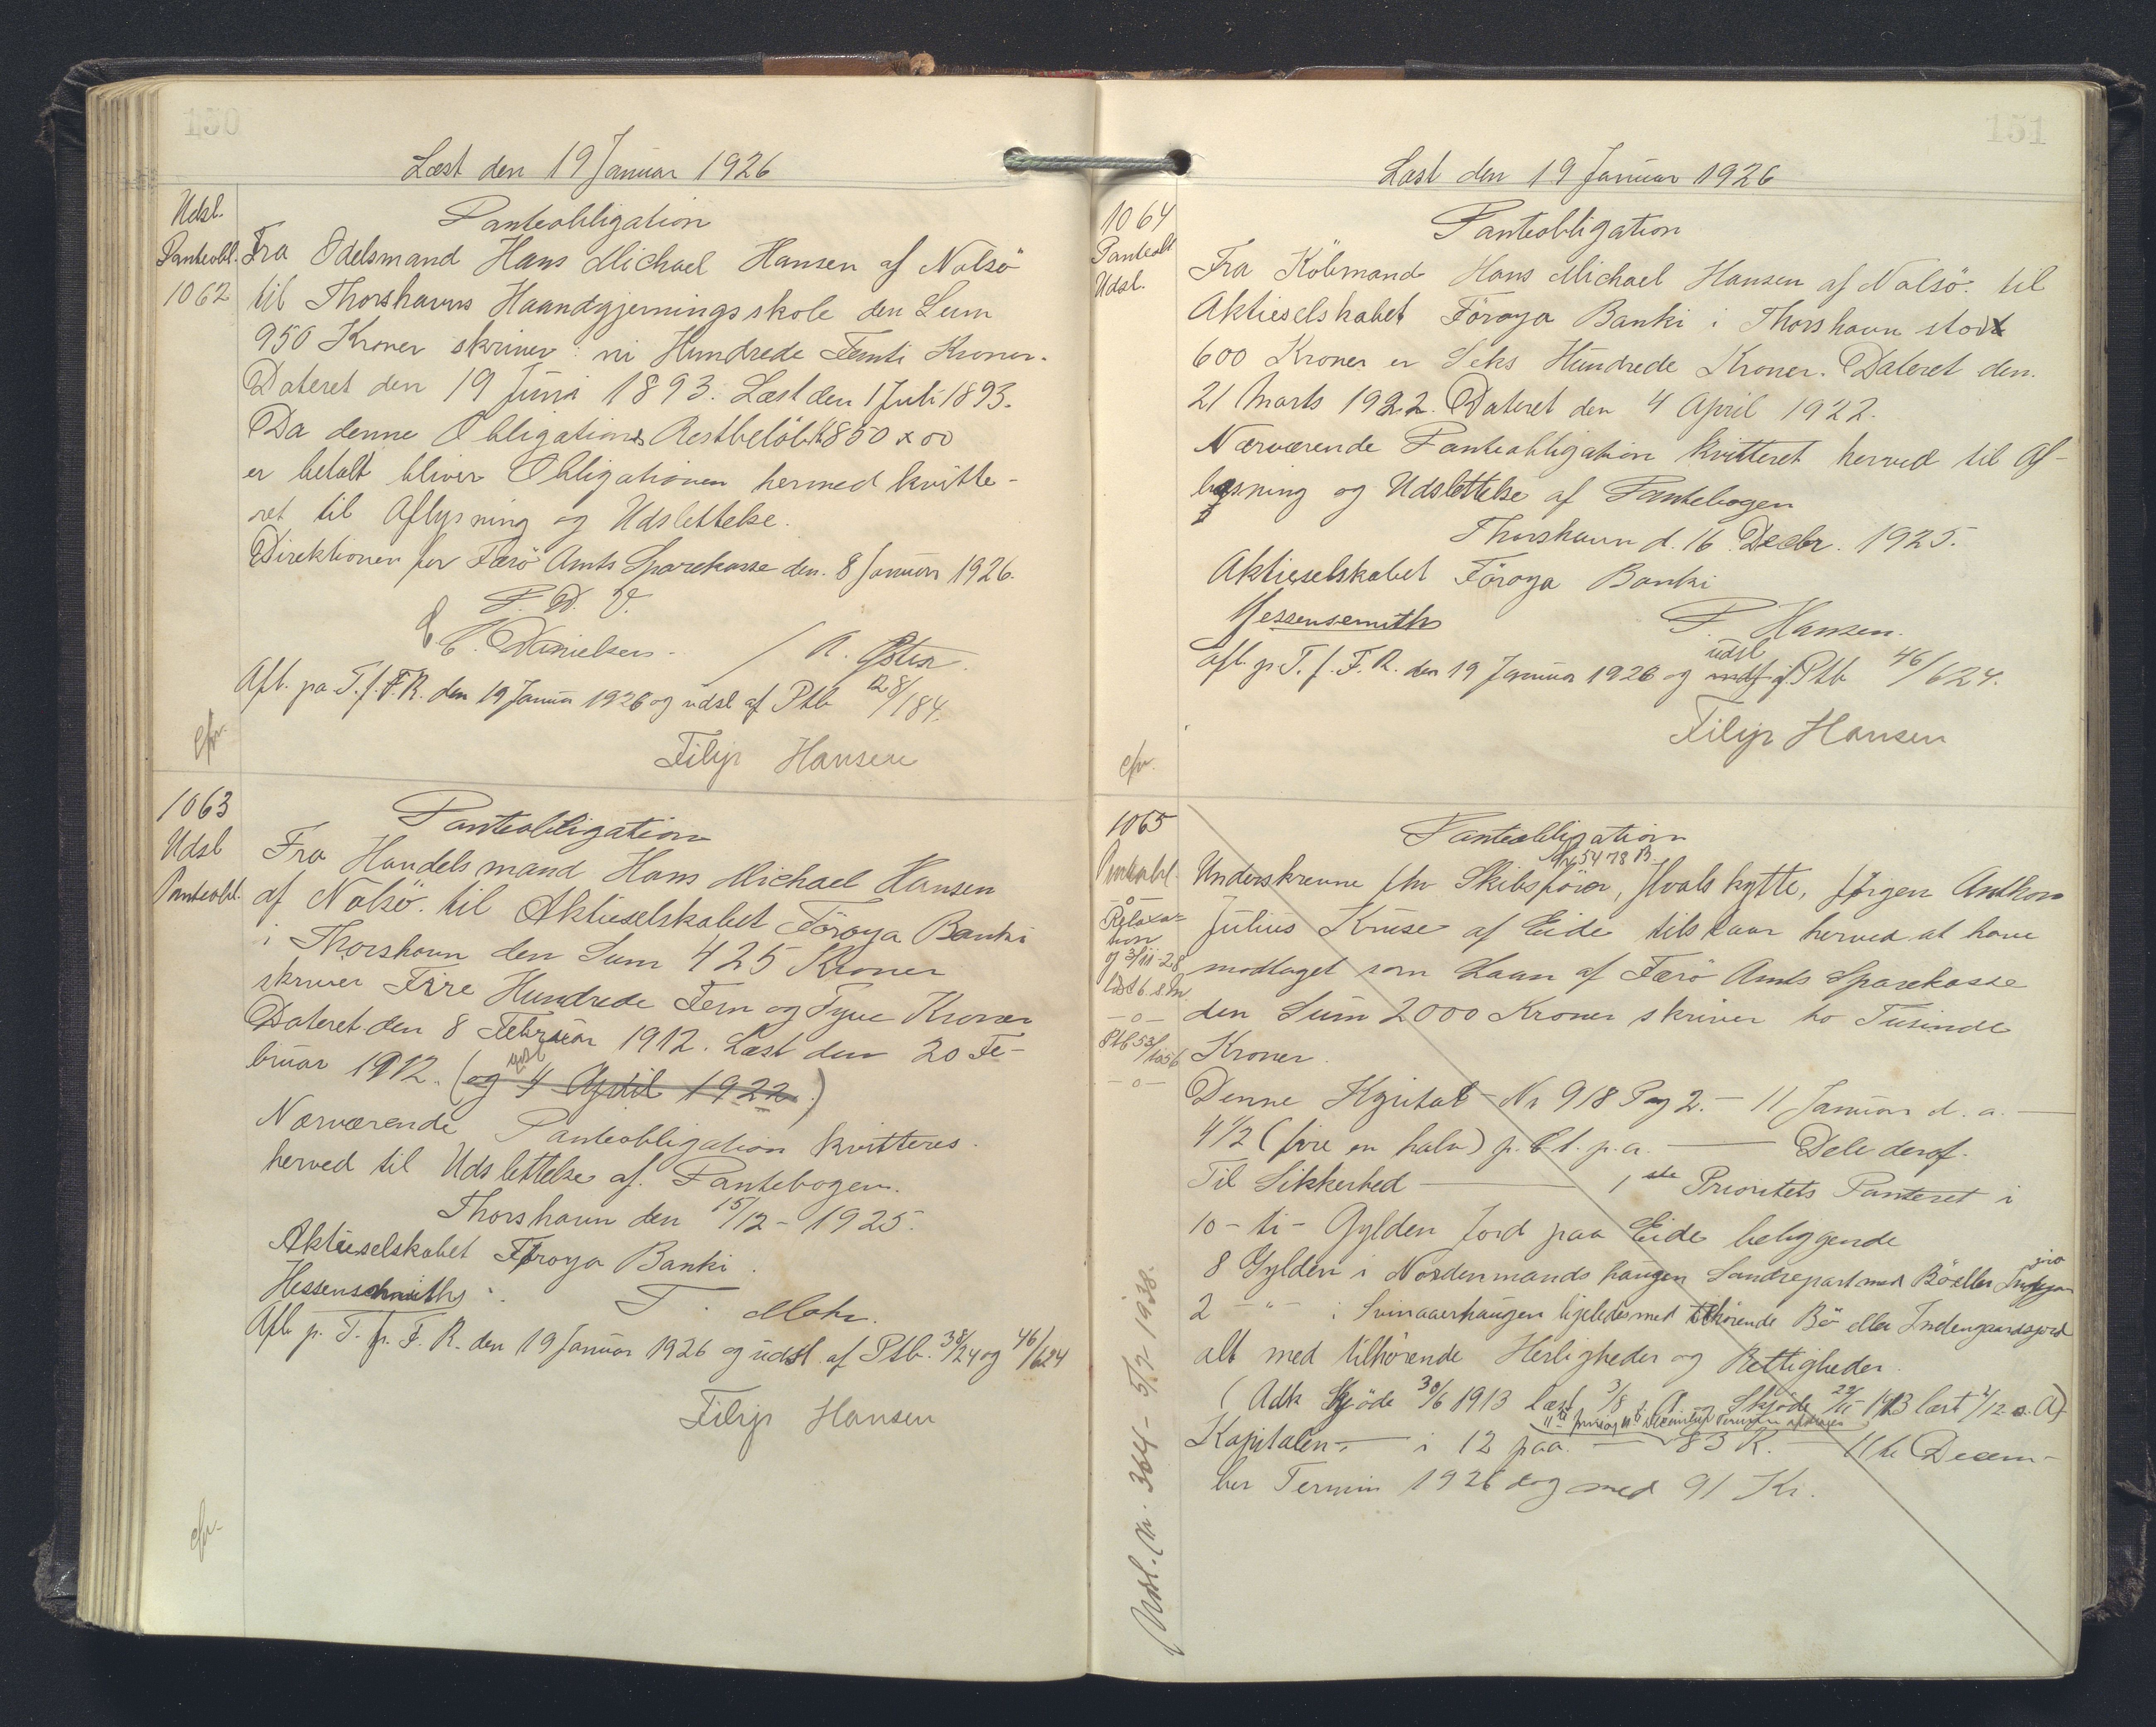 150
Læst den 19 Januar 1926
Udsl.
Panteobl.
1062
Panteobligation
Fra Odelsmand Hans Michael Hansen af Nolsö
til Thorshavns Haandgjerningsskole den Sum
950 Kroner skriver: ni Hundrede Femti Kroner.
Dateret den 19 Juni 1893. Læst den 1 Juli 1893.
Da denne Obligations Restbelöb Kr 850 x 00
er betalt bliver Obligationen hermed kvitte-
ret til Aflysning og Udslettelse.
Direktionen for Færö Amts Sparekasse den. 8 Januar 1926.
P. D. V.
E. C. Danielsen. / A.
Afl. pa T. f. F. R. den 19 Januar 1926 og udsl af Ptb 28/184.
Filip Hansen
1063
Udsl
Panteobl.
Panteobligation
Fra Handelsmand Hans Michael Hansen
af Nolsö. til Aktieselskabet Föroya Banki
i Thorshavn den Sum 425 Kroner
skriver Fire Hundrede Fem og Tyve Kroner
Dateret den 8 Februar 1912. Læst den 20 Fe-
bruar 1912. (og 4 April 1922.)
Nærværende Panteobligation kvitteres
herved til Udslettelse af Pantebogen.
Thorshavn den 15/12 - 1925.
Aktieselskabet Föroya Banki.
T. Mohr.
Afl. p. T. f. F. R. den 19 Januar 1926 og udsl. af Ptb. 38/24 og 46/624
Filip Hansen
151
Læst den 19 Januar 1926
1064
Panteobl
Udsl.
Panteobligation
Fra Köbmand Hans Michael Hansen af Nolsö. til
Aktieselskabet Föroya Banki i Thorshavn stort
600 Kroner er Seks Hundrede Kroner. Dateret den.
21 Marts 1922. Dateret den 4 April 1922.
Nærværende Panteobligation kvitteret herved til Af-
lysning og Udslettelse af Pantebogen
Thorshavn d. 16. Decbr. 1925.
Aktieselskabet Föroya Banki
P. Hansen.
Afl. p. T. f. F. R. den 19 Januar 1926 og udsl af Ptb 46/624.
Filip Hansen
1065
Panteobl.
- o -
Relaxa-
tion
af 3/11-28
- o -
Ptb 53/1056
- o -
Panteobligation
5478 B.
Underskrevne fhv Skibsförer, Hvalskytte, Jörgen Anthon
Julius Kruse af Eide tilstaar herved at have
modtaget som Laan af Færö Amts Sparekasse
den Sum 2000 Kroner skriver to Tusinde
Kroner.
Denne Kapital - Nr 918 Pag 2. - 11 Januar d. a. -
4 1/2 (fire en halv) p. Ct. p. a. - Dele deraf.
Til Sikkerhed - 1ste Prioritets Panteret i
10 - ti - Gylden Jord paa Eide beliggende
8 Gylden i Nordenmandshaugen Sandrepart med Bö eller
2 - " - i Svinaaerhaugen ligeledes med tilhörende Bö eller Indengaardsjord
alt med tilhörende Herligheder og Rettigheder.
(Adk Skjöde 30/6 1913 læst 3/8 s. A. og Skjöde 22/11 1913 læst 2/12 s. A)
Kapitalen - i 12 paa. - 83 K. - 11te Decem-
ber Termin 1926 dog med 91 Kr.
Udsl. A. 364 - 5/7 1938.